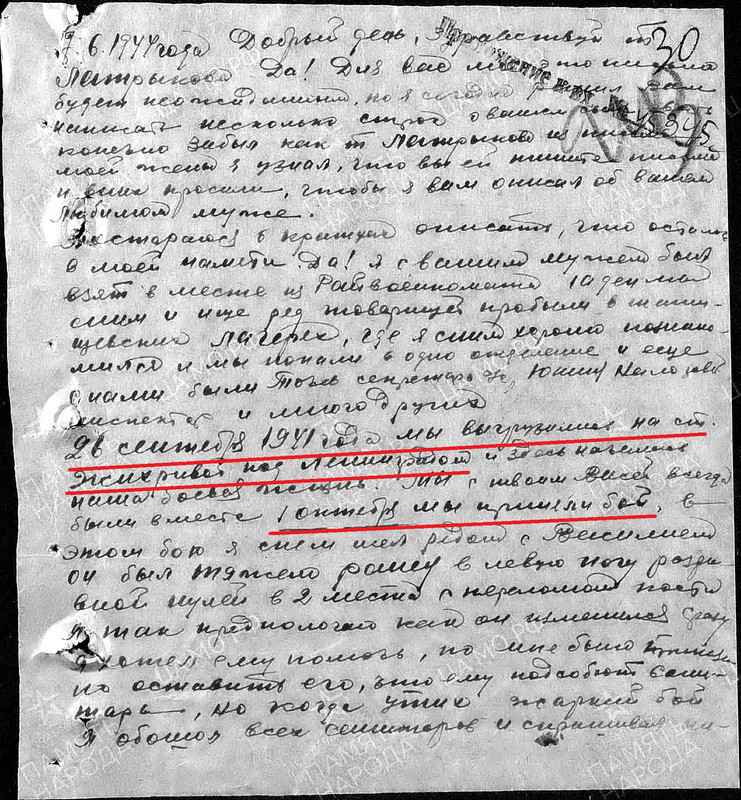 7.6.1944 года Добрый день, Здравствуй т.
Патрыкова Да! Для вас мое письмо
будет неожиданным, но я сегодня решил вам
написать несколько строк о вашем
конечно забыл как т Патрыкова из письма
моей жены я узнал, что вы ей пишите письма
и в них просили, чтобы я вам описал об вашем
любимом муже.
Постараюсь в кратце описать, что осталось
в моей памяти. Да! я с вашим мужем был
взят в месте из Райвоенкомата 10 дней мы
с ним и еще ряд товарищей пробыли в
лагерях, где я с ним хорошо познако-
мился и мы попали в одно отделение и еще
с нами были секретарь
инспектор и много других
26 сентября 1941 года мы выгрузились на ст.
под Ленинградом и здесь началась
наша боевая жизнь. Мы с твоим Васей всегда
были вместе 1 октября мы приняли бой, в
этом бою я с ним шел рядом с Василием
он был тяжело ранен в левую ногу разры-
вной пулей в 2 места с переломом кости
я так предпологаю как он изменился сразу
я хотел ему помочь, но мне было
но оставить его, что ему подсобют сани-
тара, но когда утих жаркий бой
Я обошол всех санитаров и спрашивал
30
ПАМЯТЬ НАРОДА
ЦАМО.РФ